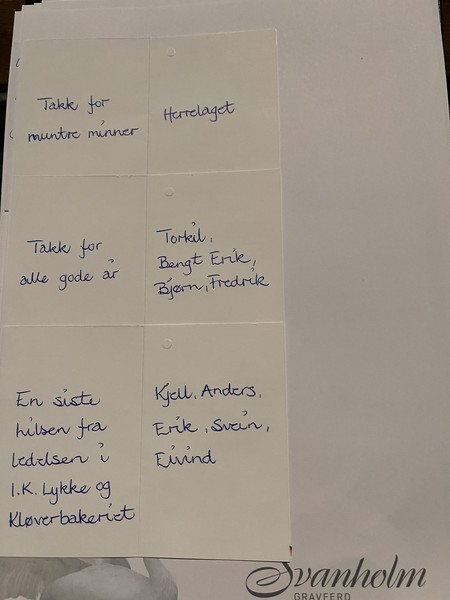 Takk for
muntre minner
Herrelaget
Takk for
alle gode år
Torkil,
Bengt Erik,
Bjørn, Fredrik
En siste
hilsen fra
ledelsen i
I.K. Lykke og
Kløverbakeriet
Kjell, Anders,
Erik, Svein,
Eivind
Svanholm
GRAVFERD